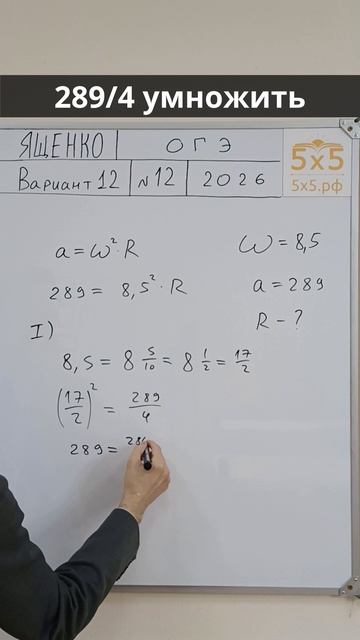 289/4 умножить
ЯЩЕНКО ОГЭ
Вариант 12 №12 2026
5х5
5х5.рф
a = ω² · R
ω = 8,5
289 = 8,5² · R
a = 289
R - ?
I)
8,5 = 8 5/10 = 8 1/2 = 17/2
(17/2)² = 289/4
289 =